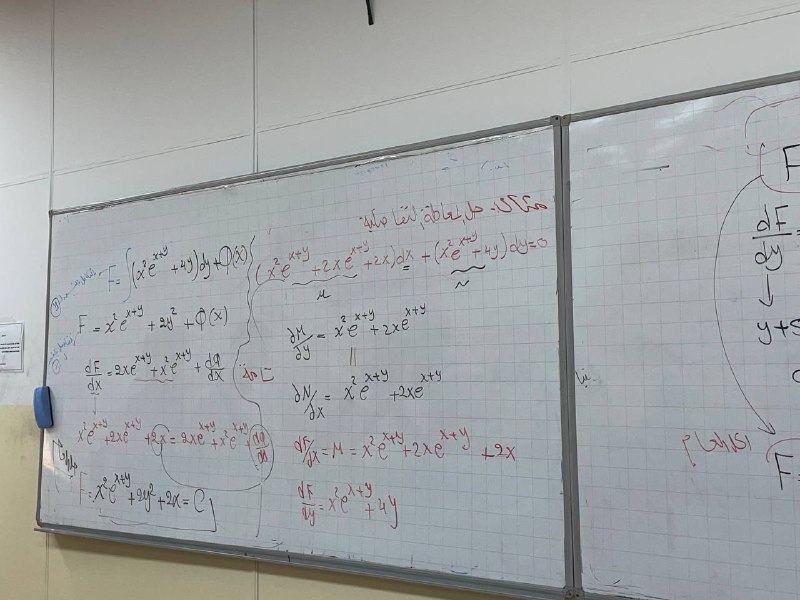 مثال: حل المعادلة التفاضلية
(x²e^{x+y} + 2xe^{x+y} + 2x)dx + (x²e^{x+y} + 4y)dy = 0
M N
∂M/∂y = x²e^{x+y} + 2xe^{x+y}
||
∂N/∂x = x²e^{x+y} + 2xe^{x+y}
تامة
dF/dx = M = x²e^{x+y} + 2xe^{x+y} + 2x
dF/dy = x²e^{x+y} + 4y
F = ∫(x²e^{x+y} + 4y)dy + Q(x)
F = x²e^{x+y} + 2y² + Q(x)
dF/dx = 2xe^{x+y} + x²e^{x+y} + dQ/dx
x²e^{x+y} + 2xe^{x+y} + 2x = 2xe^{x+y} + x²e^{x+y} + dQ/dx
F = x²e^{x+y} + 2y² + 2x = C
F
dF/dy =
↓
y + s
الحل العام
F =